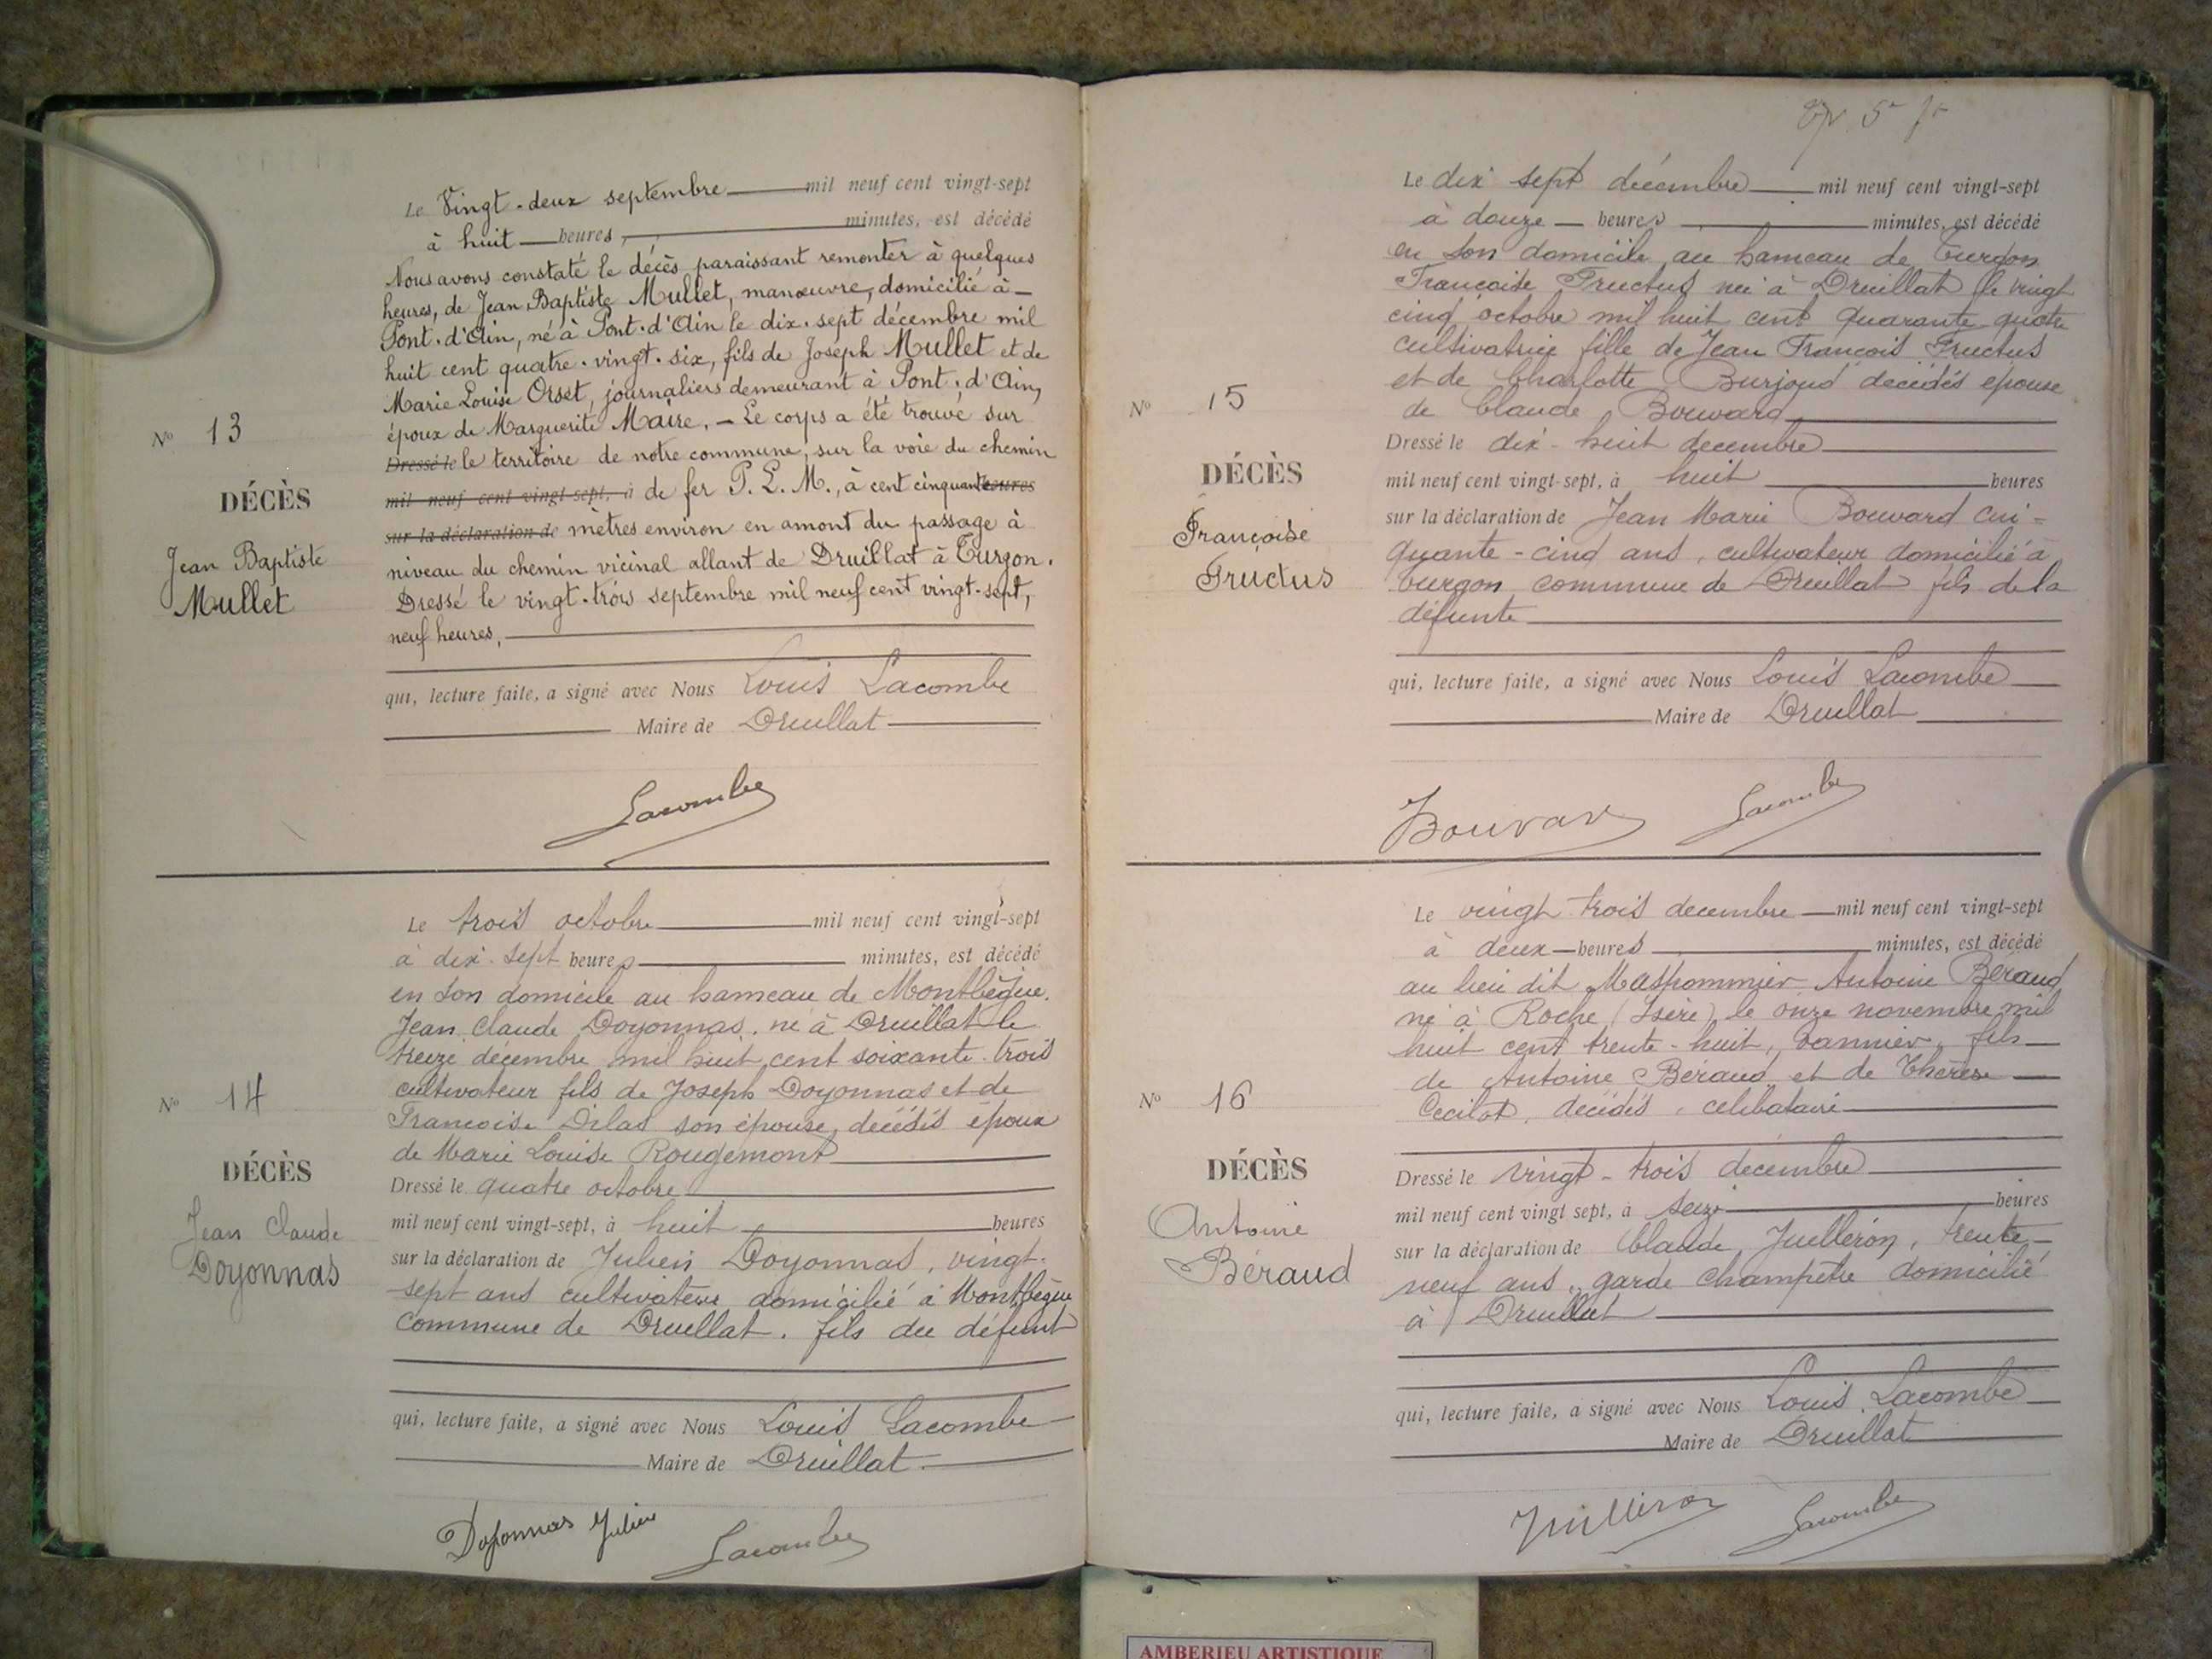 Le Vingt-deux septembre mil neuf cent vingt-sept
à huit heures, minutes, est décédé
Nous avons constaté le décès paraissant remonter à quelques
heures, de Jean Baptiste Mullet, manœuvre, domicilié à
Pont-d'Ain, né à Pont-d'Ain le dix-sept décembre mil
huit cent quatre-vingt-six, fils de Joseph Mullet et de
Marie Louise Orset, journaliers demeurant à Pont-d'Ain,
époux de Marguerite Maire. - Le corps a été trouvé sur
Dressé le le territoire de notre commune, sur la voie du chemin
mil neuf cent vingt-sept, à de fer P. L. M., à cent cinquante heures
sur la déclaration de mètres environ en amont du passage à
niveau du chemin vicinal allant de Druillat à Turgon.
Dressé le vingt-trois septembre mil neuf cent vingt-sept,
neuf heures,
qui, lecture faite, a signé avec Nous Louis Lacombe
Maire de Druillat
Lacombe
No 13
DÉCÈS
Jean Baptiste
Mullet
Le trois octobre mil neuf cent vingt-sept
à dix-sept heures minutes, est décédé
en son domicile au hameau de Montbègue.
Jean Claude Doyonnas, né à Druillat le
treize décembre mil huit cent soixante-trois
cultivateur fils de Joseph Doyonnas et de
Francoise Dilas son épouse, décédés époux
de Marie Louise Rougemont
Dressé le quatre octobre
mil neuf cent vingt-sept, à huit heures
sur la déclaration de Julien Doyonnas, vingt-
sept ans cultivateur domicilié à Montbègue
commune de Druillat. fils du défunt
qui, lecture faite, a signé avec Nous Louis Lacombe
Maire de Druillat
Doyonnas Julien Lacombe
No 14
DÉCÈS
Jean Claude
Doyonnas
5
Le dix sept décembre mil neuf cent vingt-sept
à douze heures minutes, est décédé
en son domicile au hameau de Turgon
Françoise Fructus née à Druillat le vingt
cinq octobre mil huit cent quarante-quatre
cultivatrice fille de Jean François Fructus
et de Charlotte Burjoud décédés épouse
de Claude Bouvard
Dressé le dix-huit decembre
mil neuf cent vingt-sept, à huit heures
sur la déclaration de Jean Marie Bouvard cin=
quante-cinq ans, cultivateur domicilié à
Turgon commune de Druillat fils de la
défunte
qui, lecture faite, a signé avec Nous Louis Lacombe
Maire de Druillat
Bouvard Lacombe
No 15
DÉCÈS
Françoise
Fructus
Le vingt trois decembre mil neuf cent vingt-sept
à deux heures minutes, est décédé
au lieu dit Maspommier Antoine Béraud
né à Roche (Isère) le onze novembre mil
huit cent trente-huit, vannier, fils
de Antoine Beraud et de Thérèse
Cecilat, décédés, celibataire
Dressé le vingt-trois decembre
mil neuf cent vingt sept, à seize heures
sur la déclaration de Claude Juilleron, trente-
neuf ans, garde champêtre domicilié
à Druillat
qui, lecture faite, a signé avec Nous Louis Lacombe
Maire de Druillat
Juilleron Lacombe
No 16
DÉCÈS
Antoine
Béraud
AMBERIEU ARTISTIQUE